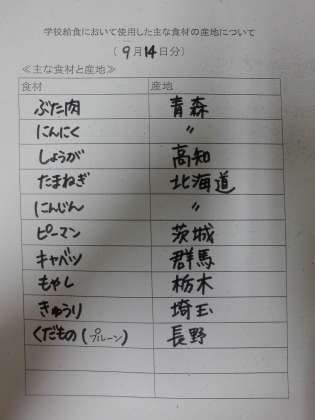 学校給食において使用した主な食材の産地について
(9月14日分)
≪主な食材と産地≫
食材 産地
ぶた肉 青森
にんにく 〃
しょうが 高知
たまねぎ 北海道
にんじん 〃
ピーマン 茨城
キャベツ 群馬
もやし 栃木
きゅうり 埼玉
くだもの(プルーン) 長野